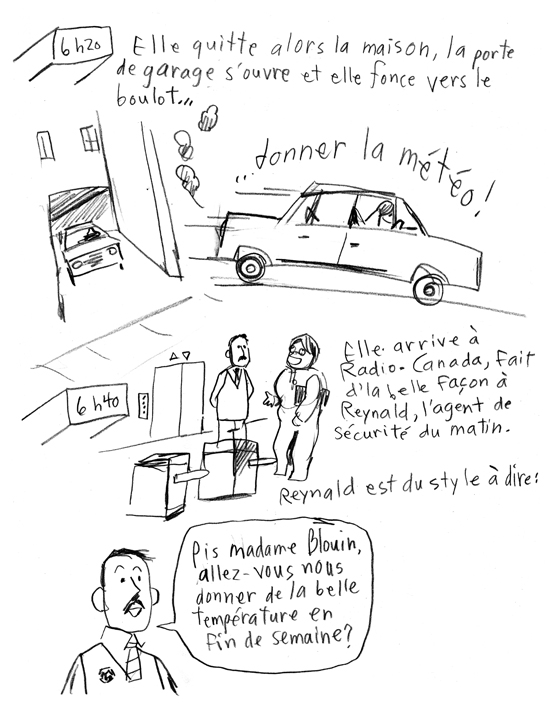 6 h20
Elle quitte alors la maison, la porte
de garage s'ouvre et elle fonce vers le
boulot...
...donner la météo!
6 h40
Elle arrive à
Radio-Canada, fait
d'la belle façon à
Reynald, l'agent de
sécurité du matin.
Reynald est du style à dire:
Pis madame Blouin,
allez-vous nous
donner de la belle
température en
fin de semaine?